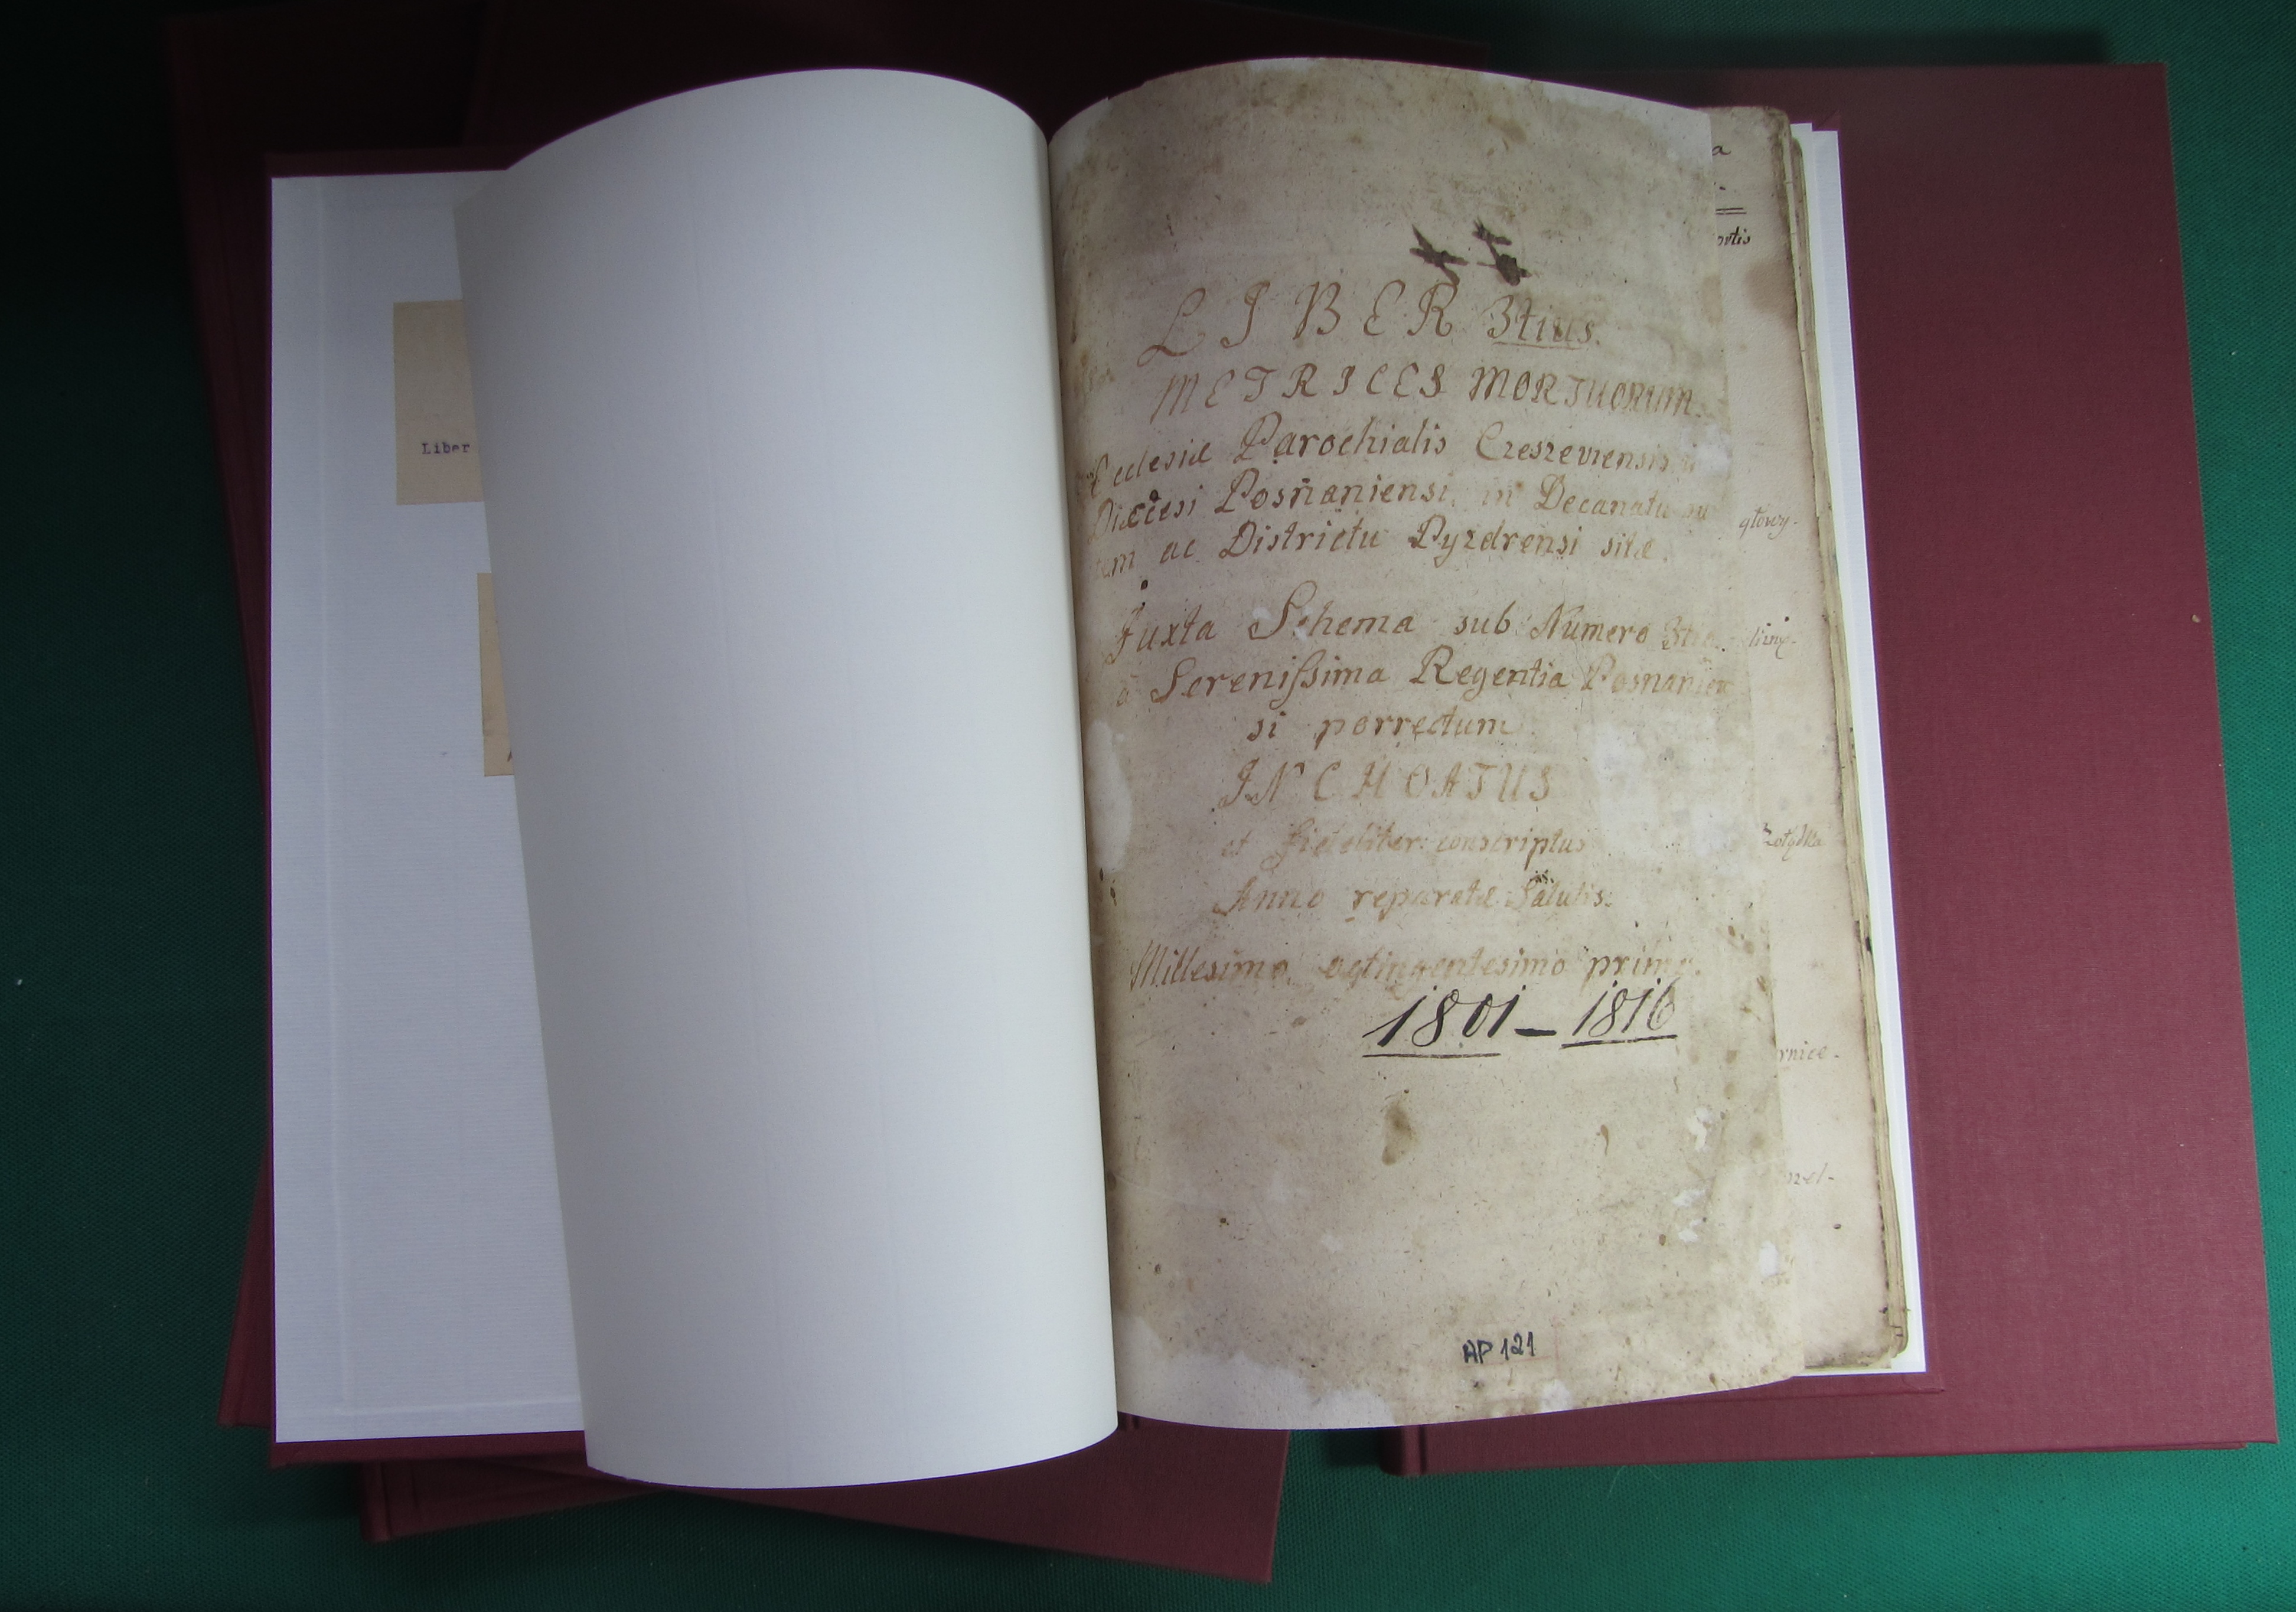 Liber
LIBER 3tius.
METRICES MORTUORUM.
Eclesiæ Parochialis Czeszeviensis
Diœcesi Posnaniensi, in Decanatu
ac Districtu Pyzdrensi sitæ.
Juxta Schema sub Numero 3tio
a Sereniſsima Regentia Posnanien
si porrectum
INCHOATUS
et fideliter conscriptus
Anno reparatæ Salutis.
Millesimo octingentesimo primo.
1801 – 1816
AP 121
a
ortis
głowy-
rnice-